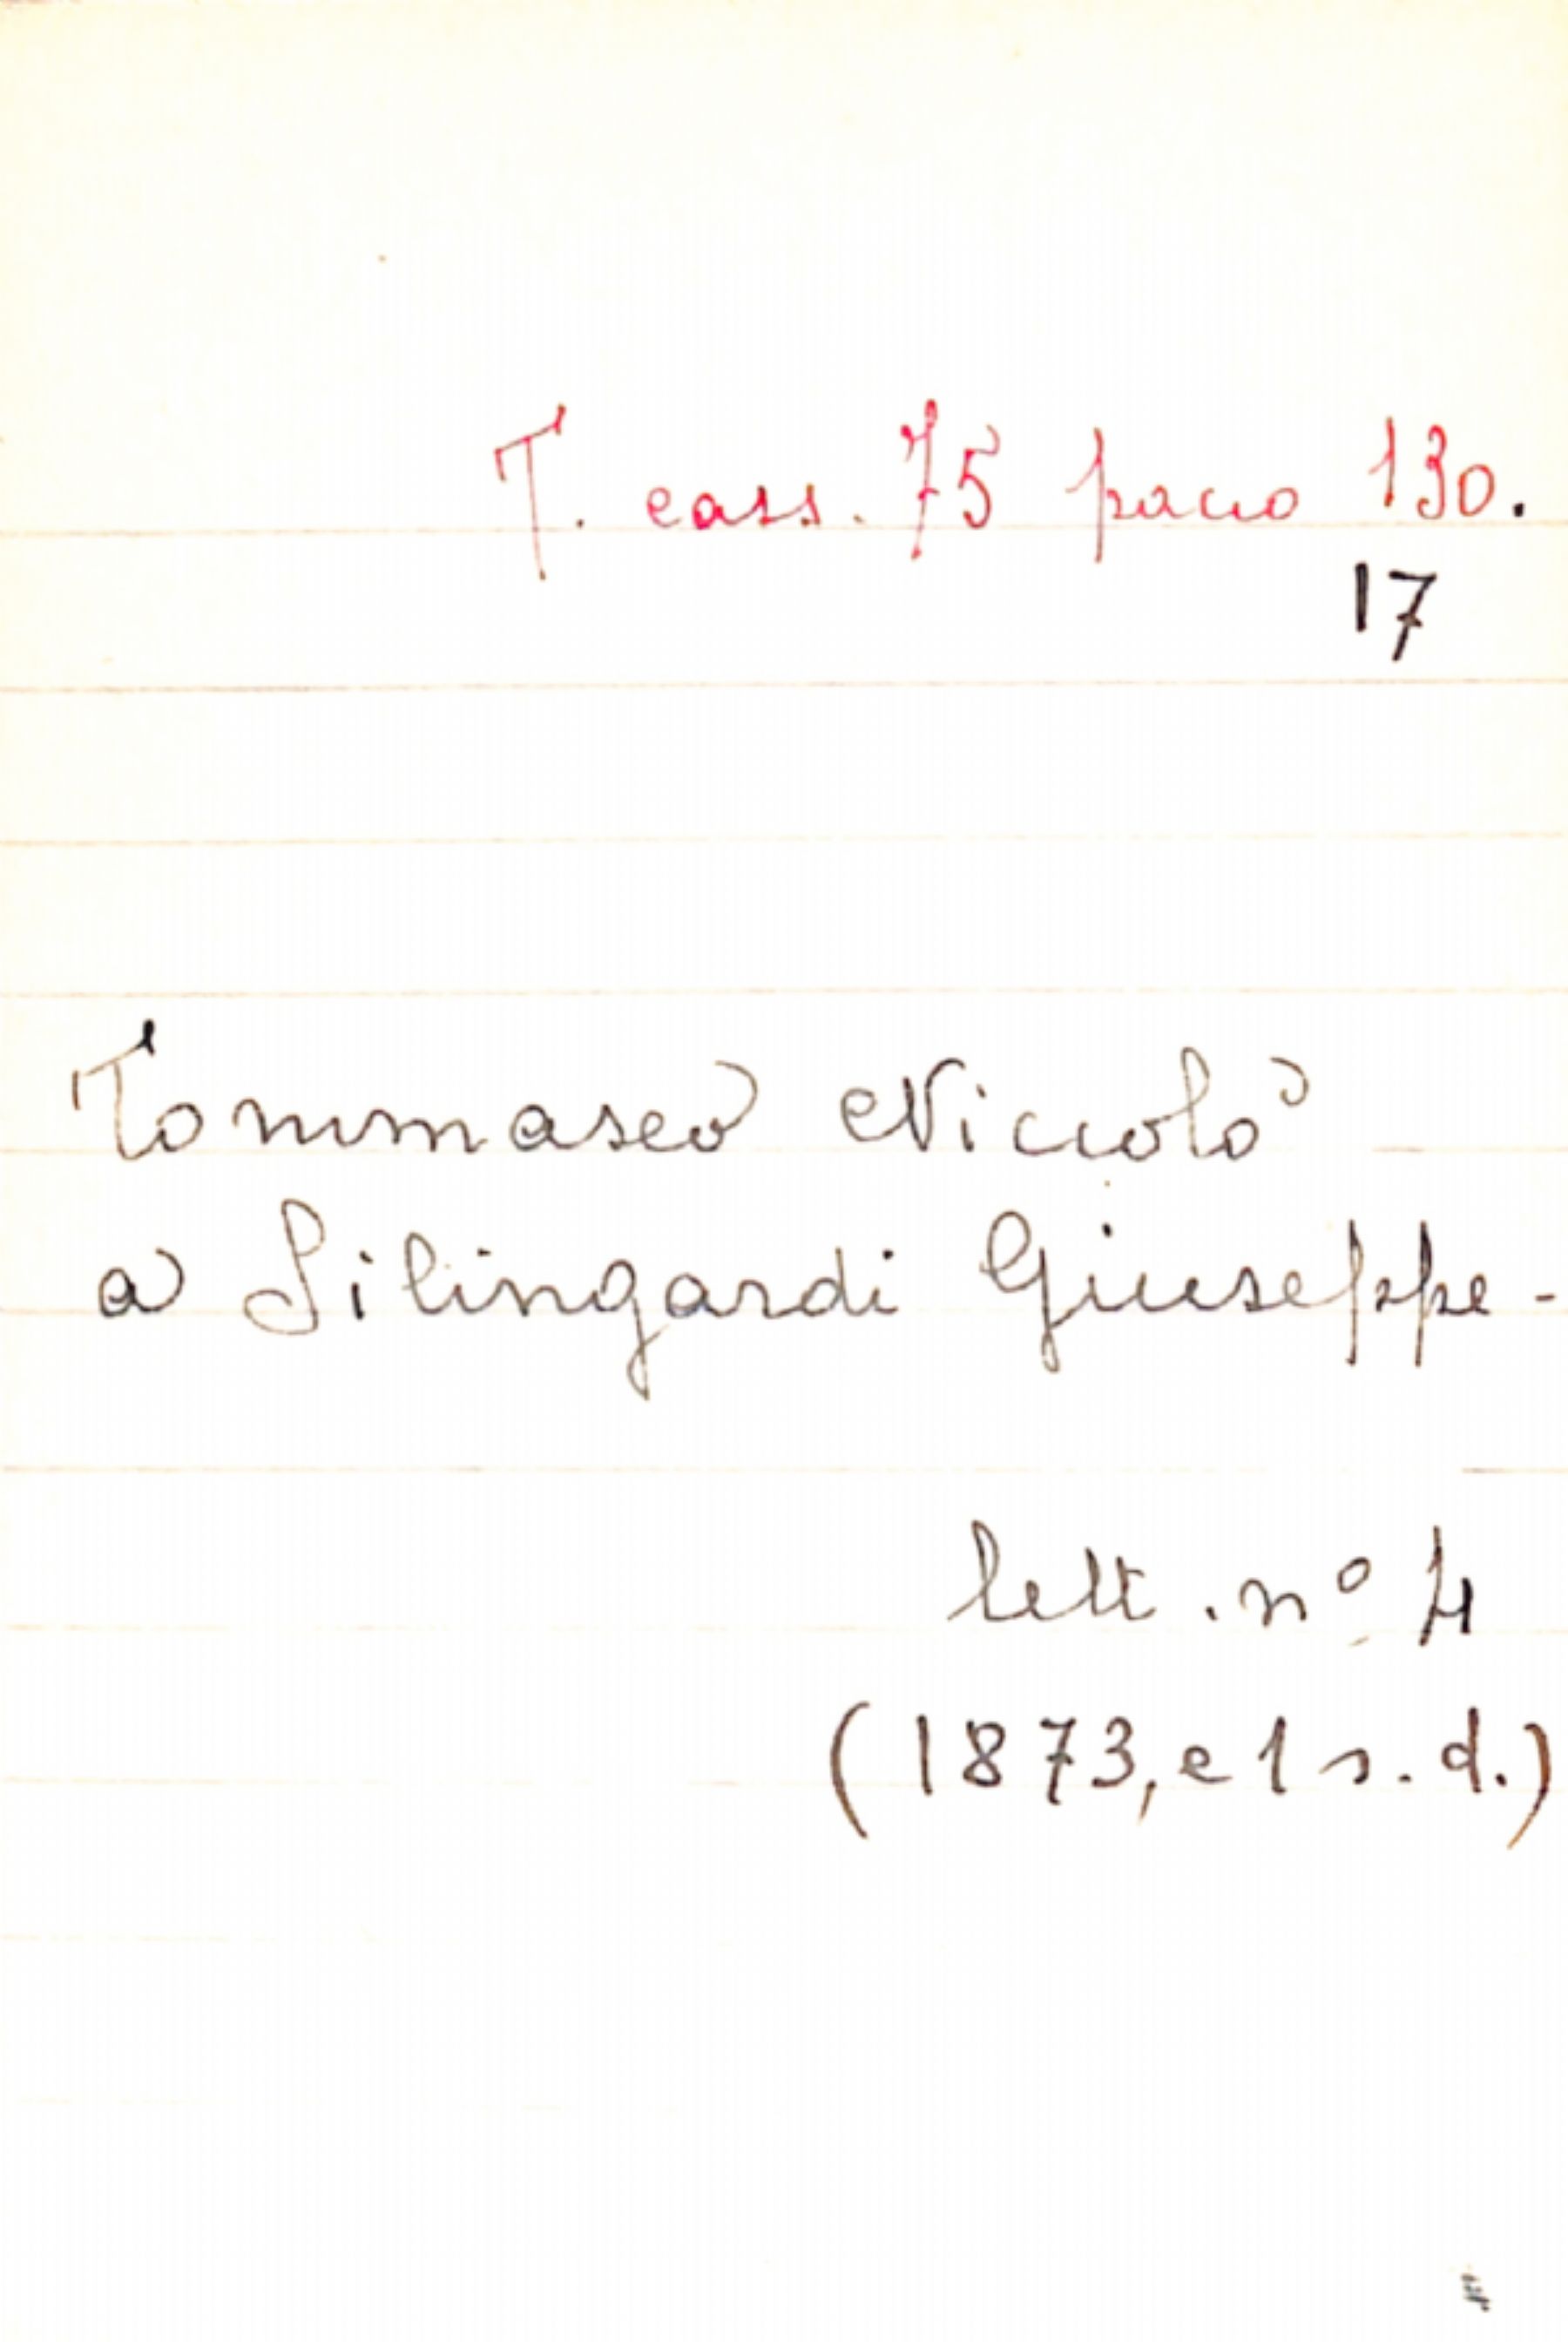 T. cass. 75 pacco 130.
17
Tommaseo Niccolò
a Silingardi Giuseppe -
lett. nº 4
(1873, e 1 s. d.)